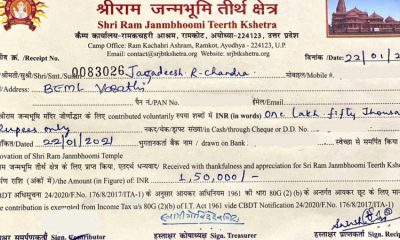 श्रीराम जन्मभूमि तीर्थ क्षेत्र
Shri Ram Janmbhoomi Teerth Kshetra
कैम्प कार्यालय-रामकचहरी आश्रम, रामकोट, अयोध्या-224123, उत्तर प्रदेश
Camp Office: Ram Kachahri Ashram, Ramkot, Ayodhya-224123, U.P.
/Receipt No. 0083026
22/01/2
/Shri/Smt./ Jagadeesh R-chandra मोबाइल/Mobile #
/Address/ BEML
पैन नं./PAN No. ईमेल/Email
श्रीराम मन्दिर जीर्णोद्धार के लिए contributed voluntarily रूपये शब्दों में INR (in words) One lakh fifty Thous
Rupees only नकद/चेक/ड्राफ्ट संख्या/in Cash/through Cheque or D.D. No.
/Dated 22/01/2021 भुगतानकर्ता बैंक नाम / drawn on Bank स्वेच्छा से समर्पित किया
ovation of Shri Ram Janmbhoomi Temple
जन्मभूमि तीर्थ क्षेत्र के लिए प्राप्त किया, धन्यवाद/Received with thankfulness and appreciation for Shri Ram Janmbhoomi Teerth Ksh
राशि अंकों में/the Amount (in Figure) of INR 1,50,000/-
CBDT अधिसूचना 24/2020/F.No. 176/8/2017/ITA-1) के अनुसार आयकर अधिनियम 1961 का धारा 80G (2) (b) के अन्तर्गत आयकर छूट के लिए मान्य
contribution is exempted from Income Tax u/s 80G (2) (b) of I.T. Act 1961 vide CBDT Notification 24/2020/F.No. 176/8/2017/ITA-1)
हस्ताक्षर कोषाध्यक्ष हस्ताक्षर संग्रहकर्ता